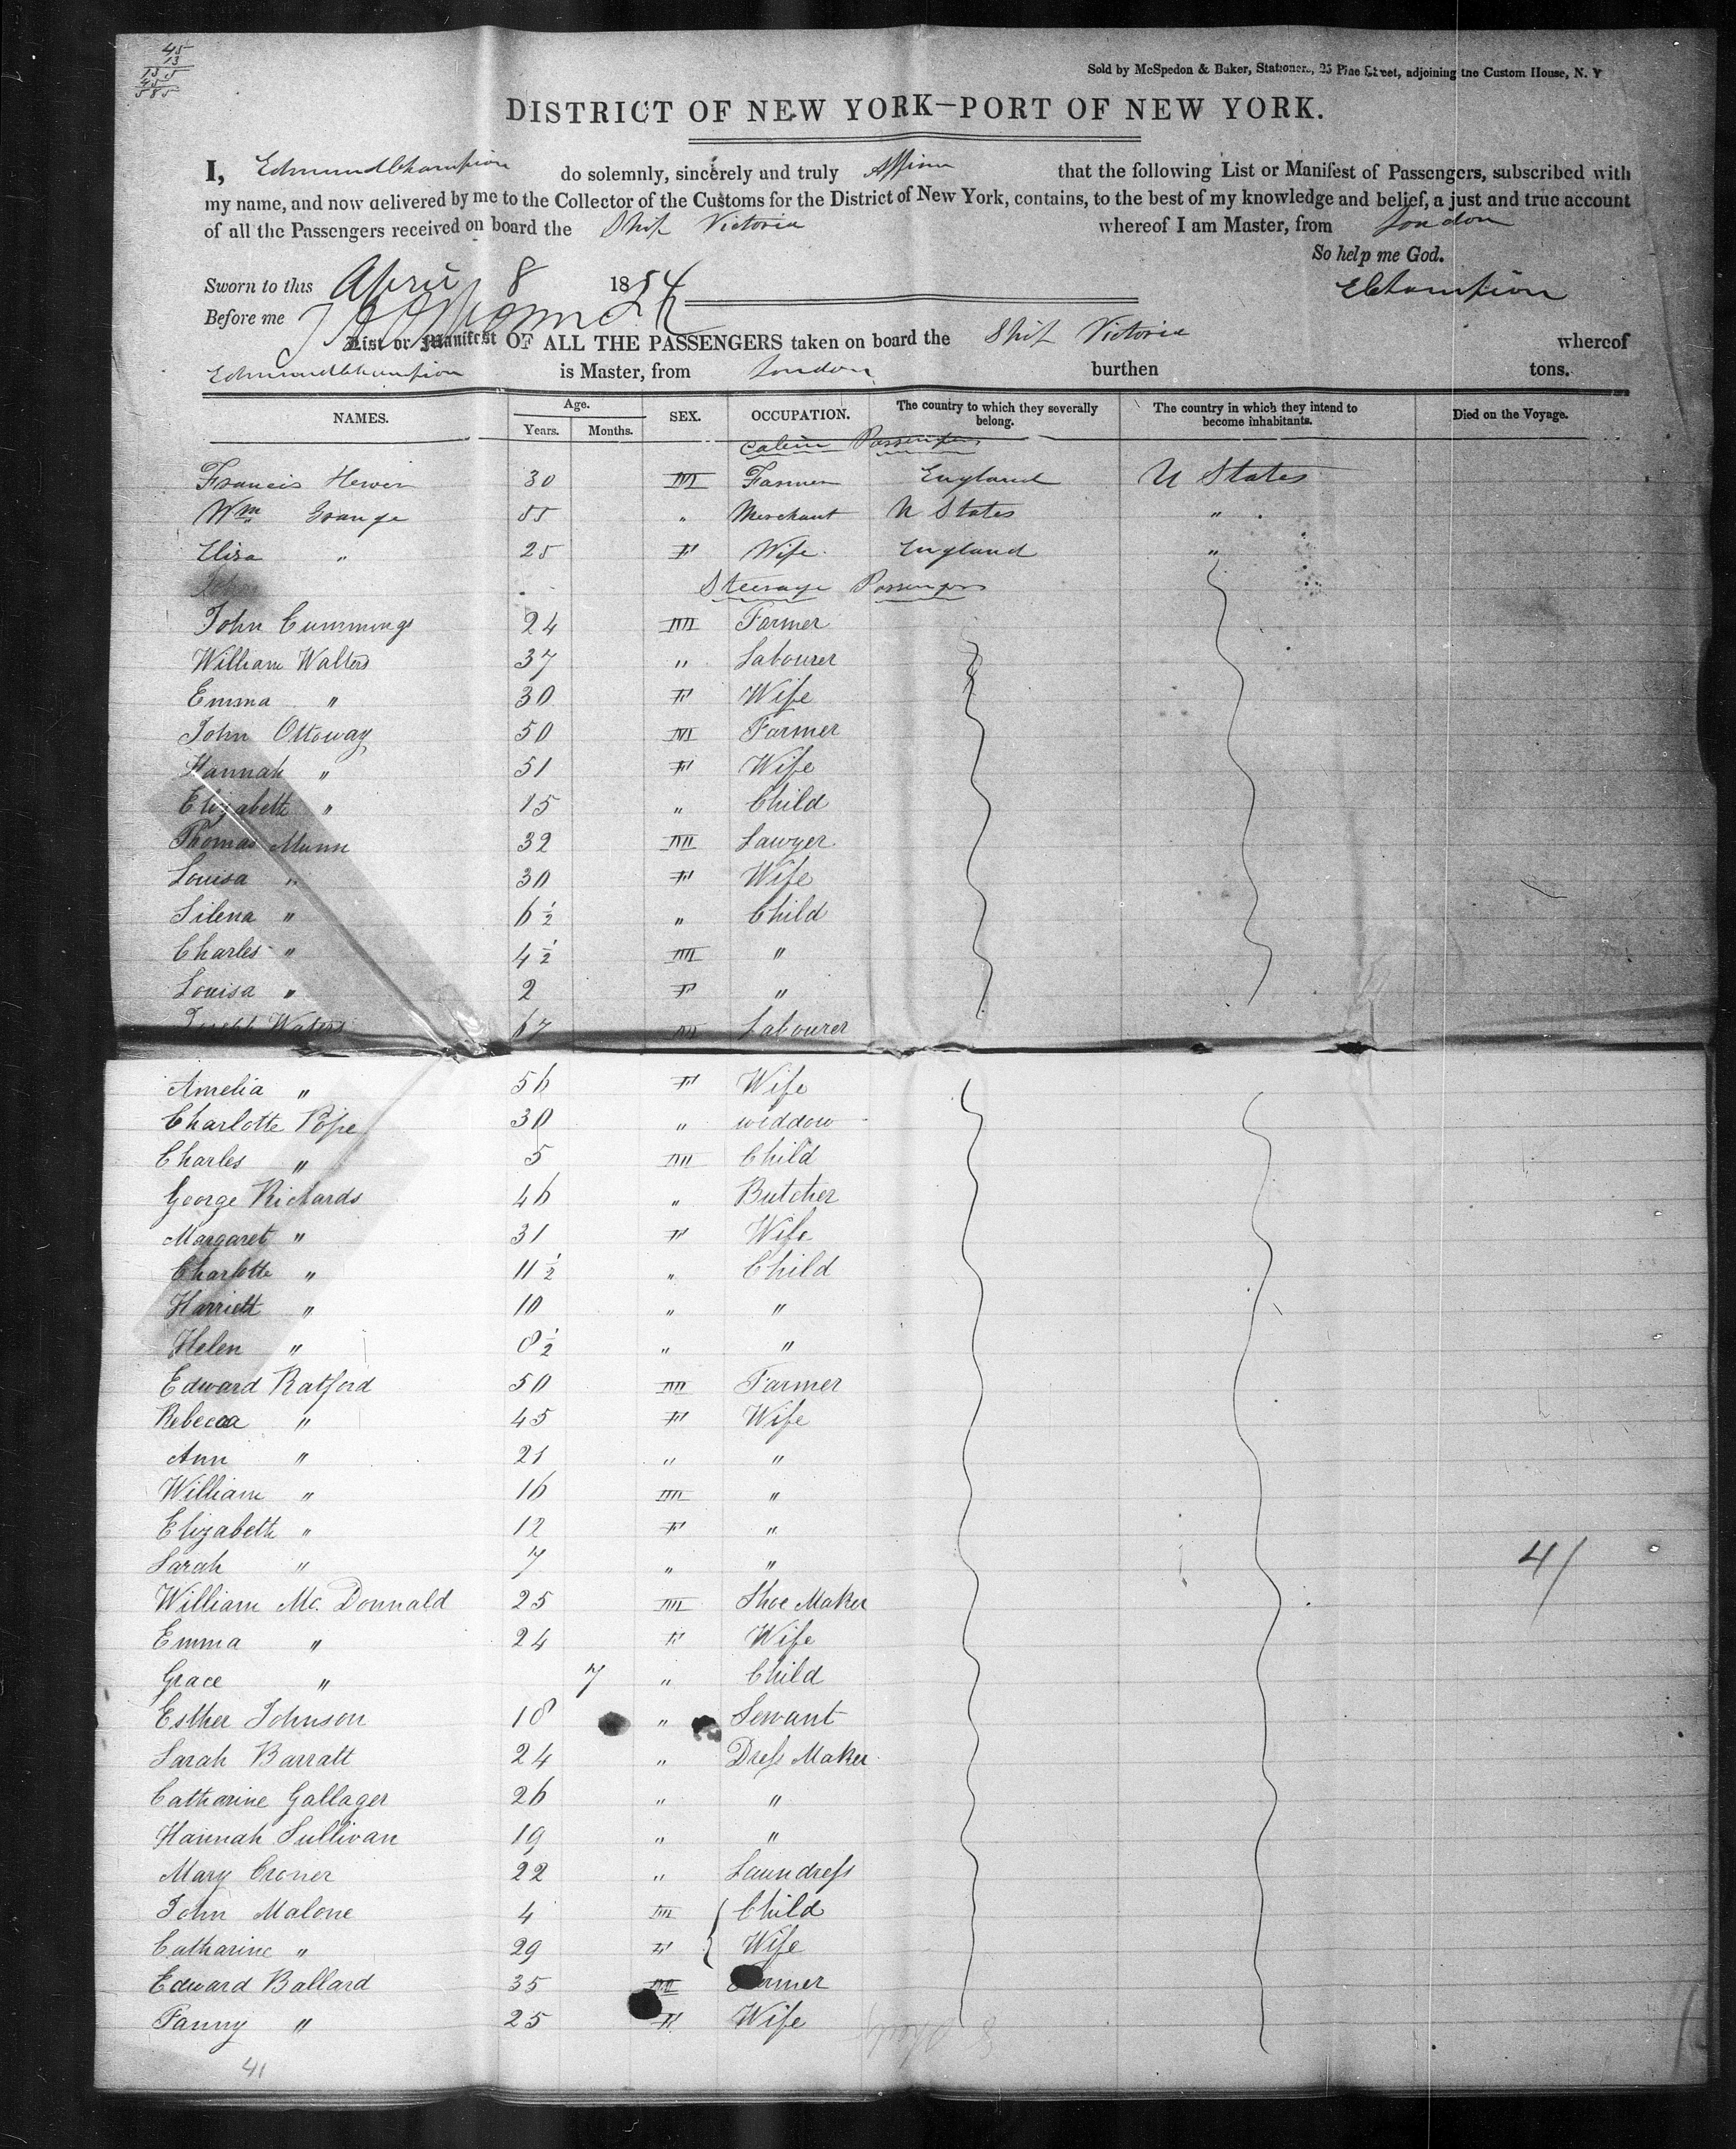 45
13
135
45
585
Sold by McSpedon & Baker, Stationers, 25 Pine Street, adjoining the Custom House, N. Y
DISTRICT OF NEW YORK—PORT OF NEW YORK.
I, Edmund Champion do solemnly, sincerely and truly Affirm that the following List or Manifest of Passengers, subscribed with
my name, and now delivered by me to the Collector of the Customs for the District of New York, contains, to the best of my knowledge and belief, a just and true account
of all the Passengers received on board the Ship Victoria whereof I am Master, from London
So help me God.
Sworn to this April 8 1854
E Champion
Before me
List or Manifest OF ALL THE PASSENGERS taken on board the Ship Victoria whereof
Edmund Champion is Master, from London burthen tons.
NAMES. Age. Years. Months. SEX. OCCUPATION. The country to which they severally belong. The country in which they intend to become inhabitants. Died on the Voyage.
Cabin Passengers
Francis 30 M Farmer England U States
Wm Grange 55 " Merchant U States "
Eliza " 25 F Wife England "
John
Steerage Passengers
John Cummings 24 M Farmer
William Walters 37 " Labourer
Emma " 30 F Wife
John Ottoway 50 M Farmer
Hannah " 51 F Wife
Elizabeth " 15 " Child
Thomas Munn 32 M Lawyer
Louisa " 30 F Wife
Silena " 6 1/2 " Child
Charles " 4 1/2 M "
Louisa " 2 F "
Joseph Waters 67 M Labourer
Amelia " 56 F Wife
Charlotte Pope 30 " widdow
Charles " 5 M Child
George Richards 46 " Butcher
Margaret " 31 F Wife
Charlotte " 11 1/2 " Child
Harriett " 10 " "
Helen " 8 1/2 " "
Edward Ratford 50 M Farmer
Rebecca " 45 F Wife
Ann " 21 " "
William " 16 M "
Elizabeth " 12 F "
Sarah " 7 " "
41
William Mc. Donnald 25 M Shoe Maker
Emma " 24 F Wife
Grace " 7 " Child
Esther Johnson 18 " Servant
Sarah Barratt 24 " Dress Maker
Catharine Gallager 26 " "
Hannah Sullivan 19 " "
Mary Croner 22 " Laundress
John Malone 4 M Child
Catharine " 29 F Wife
Edward Ballard 35 M Farmer
Fanny " 25 F Wife
41